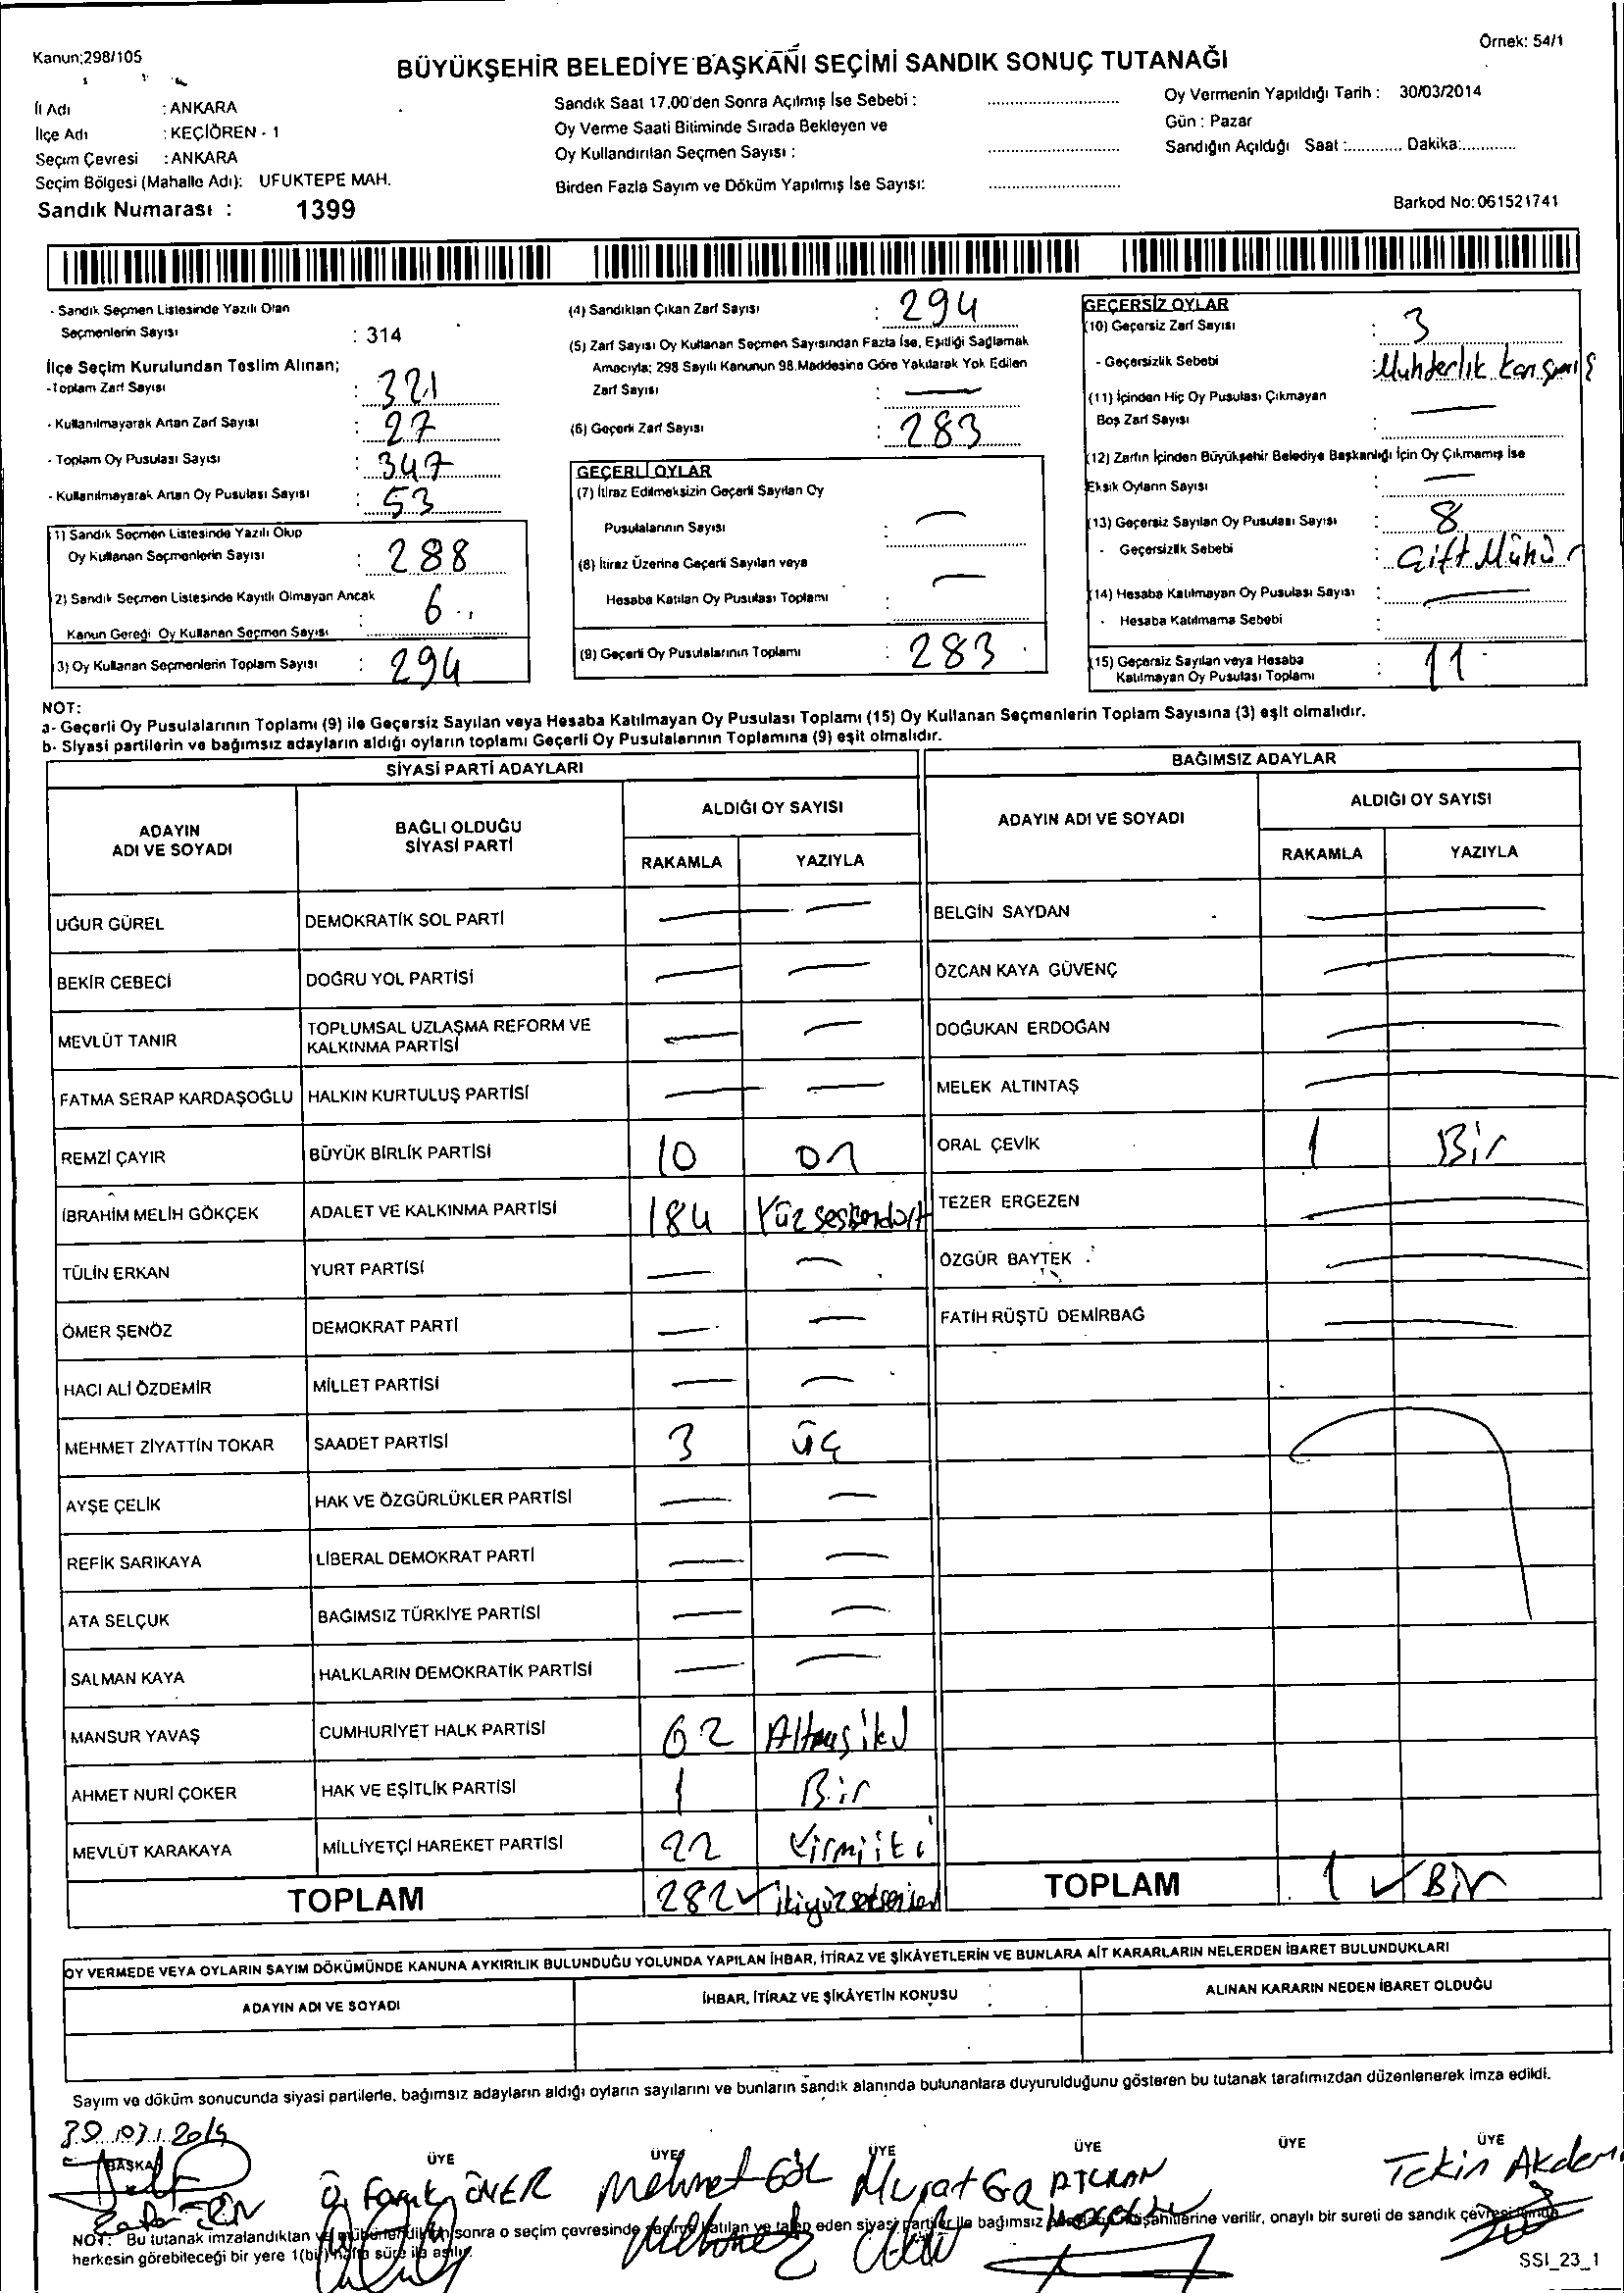 Kanun;298/105
Örnek: 54/1
BÜYÜKŞEHİR BELEDİYE BAŞKANI SEÇİMİ SANDIK SONUÇ TUTANAĞI
İl Adı : ANKARA
İlçe Adı : KEÇİÖREN - 1
Seçim Çevresi : ANKARA
Seçim Bölgesi (Mahalle Adı): UFUKTEPE MAH.
Sandık Numarası : 1399
Sandık Saat 17.00'den Sonra Açılmış İse Sebebi :
Oy Verme Saati Bitiminde Sırada Bekleyen ve
Oy Kullandırılan Seçmen Sayısı :
Birden Fazla Sayım ve Döküm Yapılmış İse Sayısı:
Oy Vermenin Yapıldığı Tarih : 30/03/2014
Gün : Pazar
Sandığın Açıldığı Saat :............ Dakika:............
Barkod No: 061521741
- Sandık Seçmen Listesinde Yazılı Olan
Seçmenlerin Sayısı : 314
İlçe Seçim Kurulundan Teslim Alınan;
-Toplam Zarf Sayısı : 321
- Kullanılmayarak Artan Zarf Sayısı : 27
- Toplam Oy Pusulası Sayısı : 347
- Kullanılmayarak Artan Oy Pusulası Sayısı : 53
1) Sandık Seçmen Listesinde Yazılı Olup
Oy Kullanan Seçmenlerin Sayısı : 288
2) Sandık Seçmen Listesinde Kayıtlı Olmayan Ancak
Kanun Gereği Oy Kullanan Seçmen Sayısı : 6
3) Oy Kullanan Seçmenlerin Toplam Sayısı : 294
(4) Sandıktan Çıkan Zarf Sayısı : 294
(5) Zarf Sayısı Oy Kullanan Seçmen Sayısından Fazla İse, Eşitliği Sağlamak
Amacıyla; 298 Sayılı Kanunun 98.Maddesine Göre Yakılarak Yok Edilen
Zarf Sayısı : —
(6) Geçerli Zarf Sayısı : 283
GEÇERLİ OYLAR
(7) İtiraz Edilmeksizin Geçerli Sayılan Oy
Pusulalarının Sayısı : —
(8) İtiraz Üzerine Geçerli Sayılan veya
Hesaba Katılan Oy Pusulası Toplamı : —
(9) Geçerli Oy Pusulalarının Toplamı : 283
GEÇERSİZ OYLAR
(10) Geçersiz Zarf Sayısı : 3
- Geçersizlik Sebebi : Muhderlık karışmış
(11) İçinden Hiç Oy Pusulası Çıkmayan
Boş Zarf Sayısı : —
(12) Zarfın İçinden Büyükşehir Belediye Başkanlığı İçin Oy Çıkmamış İse
Eksik Oyların Sayısı : —
(13) Geçersiz Sayılan Oy Pusulası Sayısı : 8
- Geçersizlik Sebebi : Çift Mühür
(14) Hesaba Katılmayan Oy Pusulası Sayısı : —
- Hesaba Katılmama Sebebi :
(15) Geçersiz Sayılan veya Hesaba
Katılmayan Oy Pusulası Toplamı : 11
NOT:
a- Geçerli Oy Pusulalarının Toplamı (9) ile Geçersiz Sayılan veya Hesaba Katılmayan Oy Pusulası Toplamı (15) Oy Kullanan Seçmenlerin Toplam Sayısına (3) eşit olmalıdır.
b- Siyasi partilerin ve bağımsız adayların aldığı oyların toplamı Geçerli Oy Pusulalarının Toplamına (9) eşit olmalıdır.
SİYASİ PARTİ ADAYLARI
ADAYIN ADI VE SOYADI
BAĞLI OLDUĞU SİYASİ PARTİ
ALDIĞI OY SAYISI
RAKAMLA YAZIYLA
UĞUR GÜREL DEMOKRATİK SOL PARTİ — —
BEKİR CEBECİ DOĞRU YOL PARTİSİ — —
MEVLÜT TANIR TOPLUMSAL UZLAŞMA REFORM VE KALKINMA PARTİSİ — —
FATMA SERAP KARDAŞOĞLU HALKIN KURTULUŞ PARTİSİ — —
REMZİ ÇAYIR BÜYÜK BİRLİK PARTİSİ 10 on
İBRAHİM MELİH GÖKÇEK ADALET VE KALKINMA PARTİSİ 184 Yüzseksendört
TÜLİN ERKAN YURT PARTİSİ — —
ÖMER ŞENÖZ DEMOKRAT PARTİ — —
HACI ALİ ÖZDEMİR MİLLET PARTİSİ — —
MEHMET ZİYATTİN TOKAR SAADET PARTİSİ 3 üç
AYŞE ÇELİK HAK VE ÖZGÜRLÜKLER PARTİSİ — —
REFİK SARIKAYA LİBERAL DEMOKRAT PARTİ — —
ATA SELÇUK BAĞIMSIZ TÜRKİYE PARTİSİ — —
SALMAN KAYA HALKLARIN DEMOKRATİK PARTİSİ — —
MANSUR YAVAŞ CUMHURİYET HALK PARTİSİ 62 Altmışiki
AHMET NURİ ÇOKER HAK VE EŞİTLİK PARTİSİ 1 Bir
MEVLÜT KARAKAYA MİLLİYETÇİ HAREKET PARTİSİ 22 Yirmiiki
TOPLAM 282 ikiyüzsekseniki
BAĞIMSIZ ADAYLAR
ADAYIN ADI VE SOYADI
ALDIĞI OY SAYISI
RAKAMLA YAZIYLA
BELGİN SAYDAN —
ÖZCAN KAYA GÜVENÇ —
DOĞUKAN ERDOĞAN —
MELEK ALTINTAŞ —
ORAL ÇEVİK 1 Bir
TEZER ERGEZEN —
ÖZGÜR BAYTEK —
FATİH RÜŞTÜ DEMİRBAĞ —
TOPLAM 1 Bir
OY VERMEDE VEYA OYLARIN SAYIM DÖKÜMÜNDE KANUNA AYKIRILIK BULUNDUĞU YOLUNDA YAPILAN İHBAR, İTİRAZ VE ŞİKÂYETLERİN VE BUNLARA AİT KARARLARIN NELERDEN İBARET BULUNDUKLARI
ADAYIN ADI VE SOYADI
İHBAR, İTİRAZ VE ŞİKÂYETİN KONUSU
ALINAN KARARIN NEDEN İBARET OLDUĞU
Sayım ve döküm sonucunda siyasi partilerle, bağımsız adayların aldığı oyların sayılarını ve bunların sandık alanında bulunanlara duyurulduğunu gösteren bu tutanak tarafımızdan düzenlenerek imza edildi.
BAŞKAN ÜYE ÜYE ÜYE ÜYE ÜYE ÜYE
Ö. Faruk ÖNER Mehmet GÖL Murat Tekin
NOT: Bu tutanak imzalandıktan ve mühürlendikten sonra o seçim çevresinde seçime katılan ve talep eden siyasi partiler ile bağımsız verilir, onaylı bir sureti de sandık çevresinde
herkesin görebileceği bir yere 1(bir) hafta süre ile asılır.
SSI_23_1